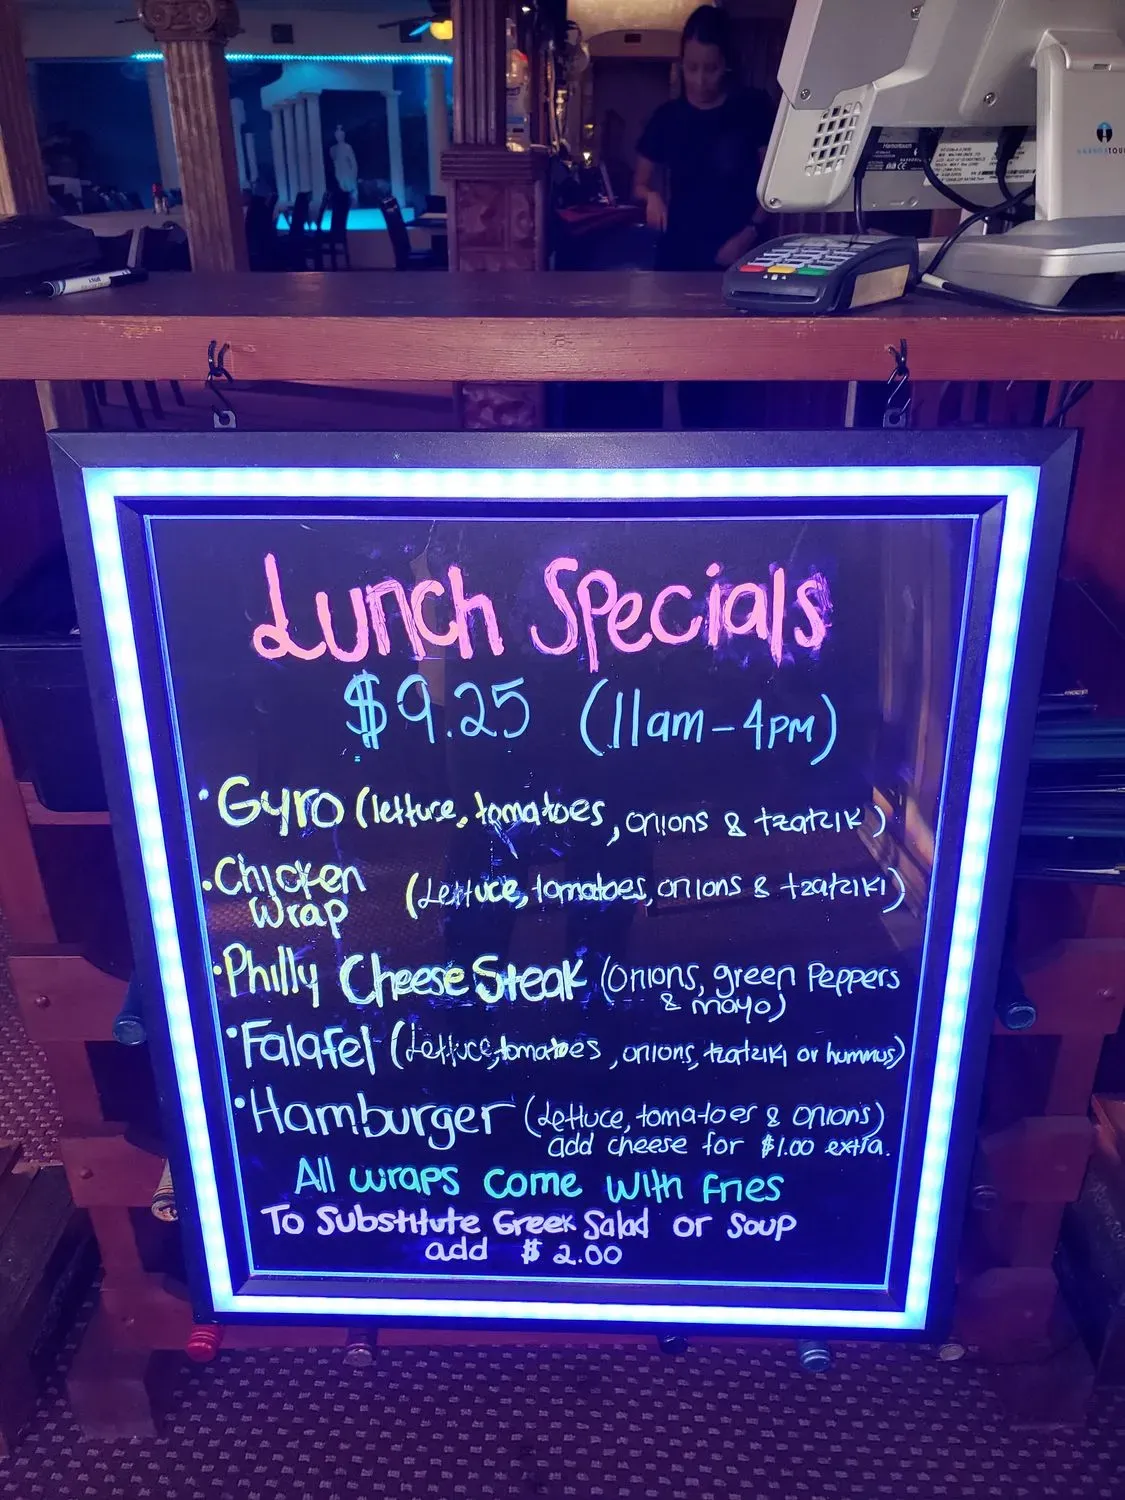 Harbortouch
HARBORTOUCH
Lunch Specials
$9.25 (11am-4PM)
• Gyro (lettuce, tomatoes, onions & tzatzik)
• Chicken Wrap (Lettuce, tomatoes, onions & tzatziki)
• Philly Cheese Steak (Onions, green Peppers
& mayo)
• Falafel (Lettuce, tomatoes, onions, tzatziki or hummus)
• Hamburger (Lettuce, tomatoes & onions)
add cheese for $1.00 extra.
All wraps come with fries
To Substitute Greek Salad or Soup
add $2.00